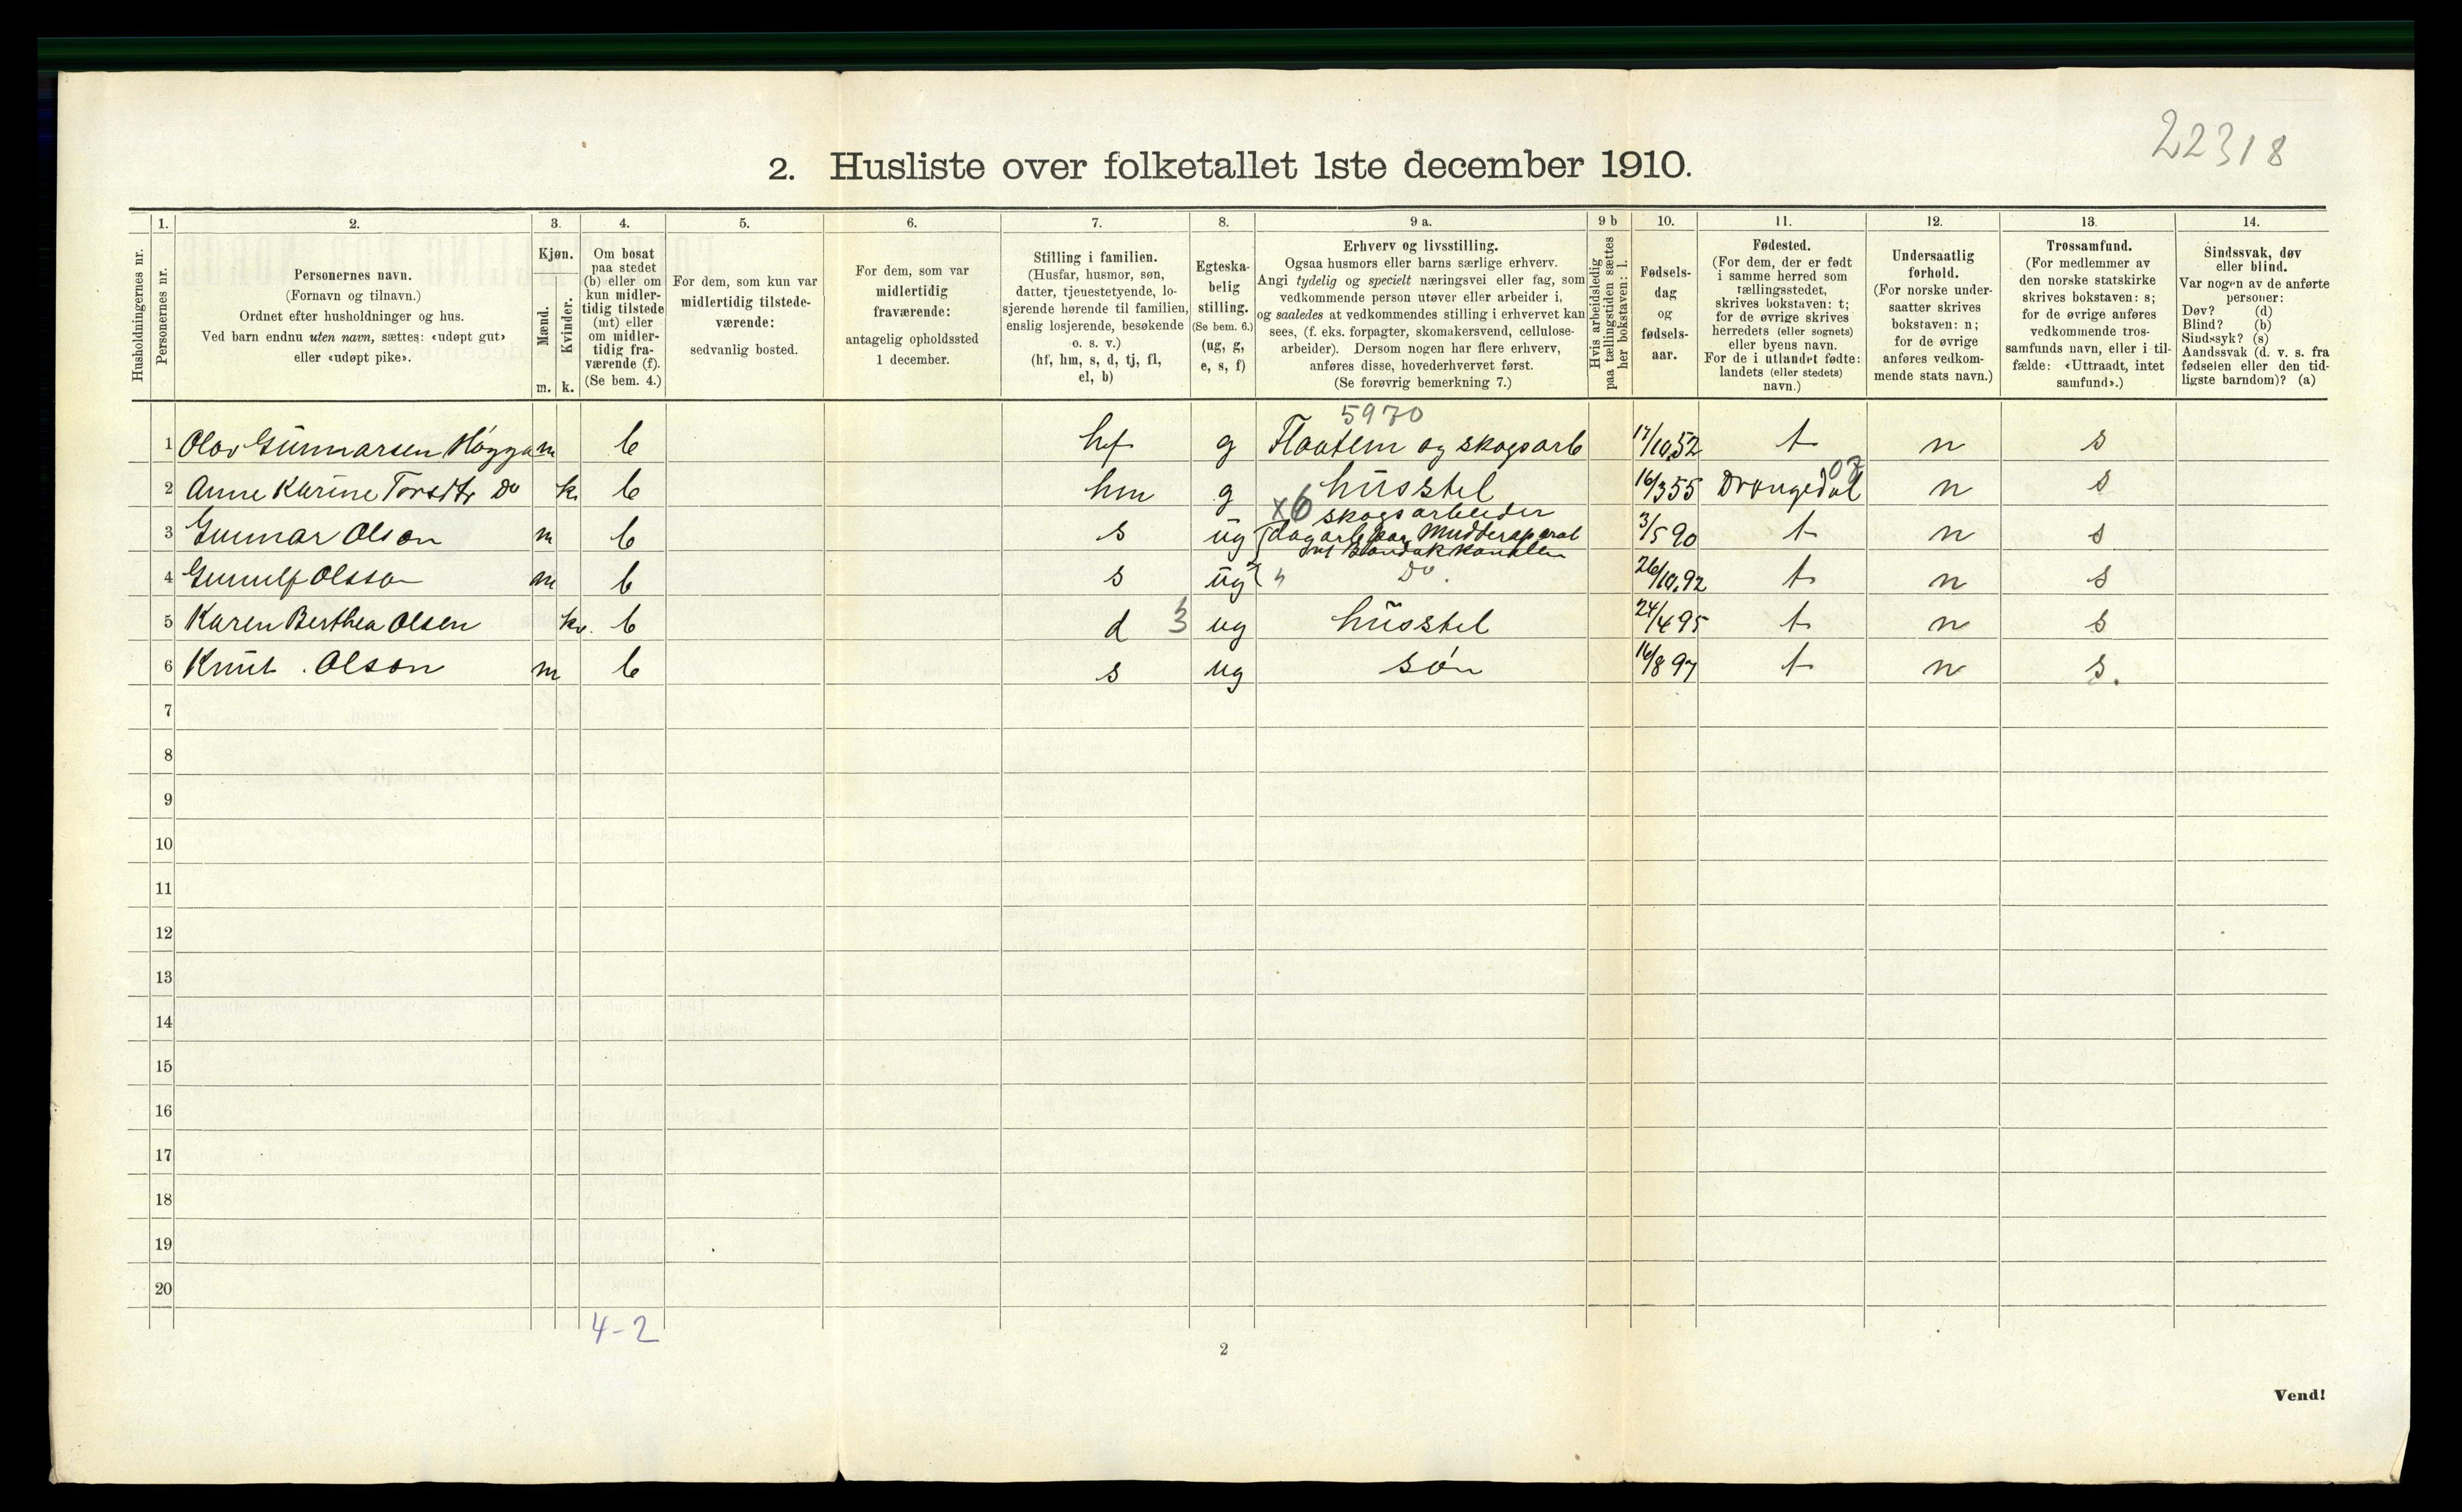 22318
2. Husliste over folketallet 1ste december 1910.
1. 2. 3. 4. 5. 6. 7. 8. 9 a. 9 b 10. 11. 12. 13. 14.
Husholdningernes nr.
Personernes nr.
Personernes navn.
(Fornavn og tilnavn.)
Ordnet efter husholdninger og hus.
Ved barn endnu uten navn, sættes: «udøpt gut»
eller «udøpt pike».
Kjøn.
Mænd.
Kvinder.
m. k.
Om bosat
paa stedet
(b) eller om
kun midler-
tidig tilstede
(mt) eller
om midler-
tidig fra-
værende (f).
(Se bem. 4.)
For dem, som kun var
midlertidig tilstede-
værende:
sedvanlig bosted.
For dem, som var
midlertidig
fraværende:
antagelig opholdssted
1 december.
Stilling i familien.
(Husfar, husmor, søn,
datter, tjenestetyende, lo-
sjerende hørende til familien,
enslig losjerende, besøkende
o. s. v.)
(hf, hm, s, d, tj, fl,
el, b)
Egteska-
belig
stilling.
(Se bem. 6.)
(ug, g,
e, s, f)
Erhverv og livsstilling.
Ogsaa husmors eller barns særlige erhverv.
Angi tydelig og specielt næringsvei eller fag, som
vedkommende person utøver eller arbeider i,
og saaledes at vedkommendes stilling i erhvervet kan
sees, (f. eks. forpagter, skomakersvend, cellulose-
arbeider). Dersom nogen har flere erhverv,
anføres disse, hovederhvervet først.
(Se forøvrig bemerkning 7.)
Hvis arbeidsledig
paa tællingstiden sættes
her bokstaven: l.
Fødsels-
dag
og
fødsels-
aar.
Fødested.
(For dem, der er født
i samme herred som
tællingsstedet,
skrives bokstaven: t;
for de øvrige skrives
herredets (eller sognets)
eller byens navn.
For de i utlandet fødte:
landets (eller stedets)
navn.)
Undersaatlig
forhold.
(For norske under-
saatter skrives
bokstaven: n;
for de øvrige
anføres vedkom-
mende stats navn.)
Trossamfund.
(For medlemmer av
den norske statskirke
skrives bokstaven: s;
for de øvrige anføres
vedkommende tros-
samfunds navn, eller i til-
fælde: «Uttraadt, intet
samfund».)
Sindssvak, døv
eller blind.
Var nogen av de anførte
personer:
Døv? (d)
Blind? (b)
Sindssyk? (s)
Aandssvak (d. v. s. fra
fødselen eller den tid-
ligste barndom)? (a)
5970
1 Olav Gunnarsen m b hf g Flaatem og skogsarb 17/10.52 t n s
07
2 Anne Karine Torsdtr Do k b hm g husstel 16/3 55 Drangedal n s
x6 skogsarbeider
3 Gunnar Olson m b s ug dagarb paa Mudderaparat 3/5 90 t n s
ved Bandakkanalen
4 Gunulf Olsson m b s ug " Do. 26/10.92 t n s
5 Karen Berthea Olsen k. b d 3 ug husstel 24/4 95 t n s
6 Knut . Olson m b s ug søn 16/8 97 t n s.
7
8
9
10
11
12
13
14
15
16
17
18
19
20
4-2
2
Vend!